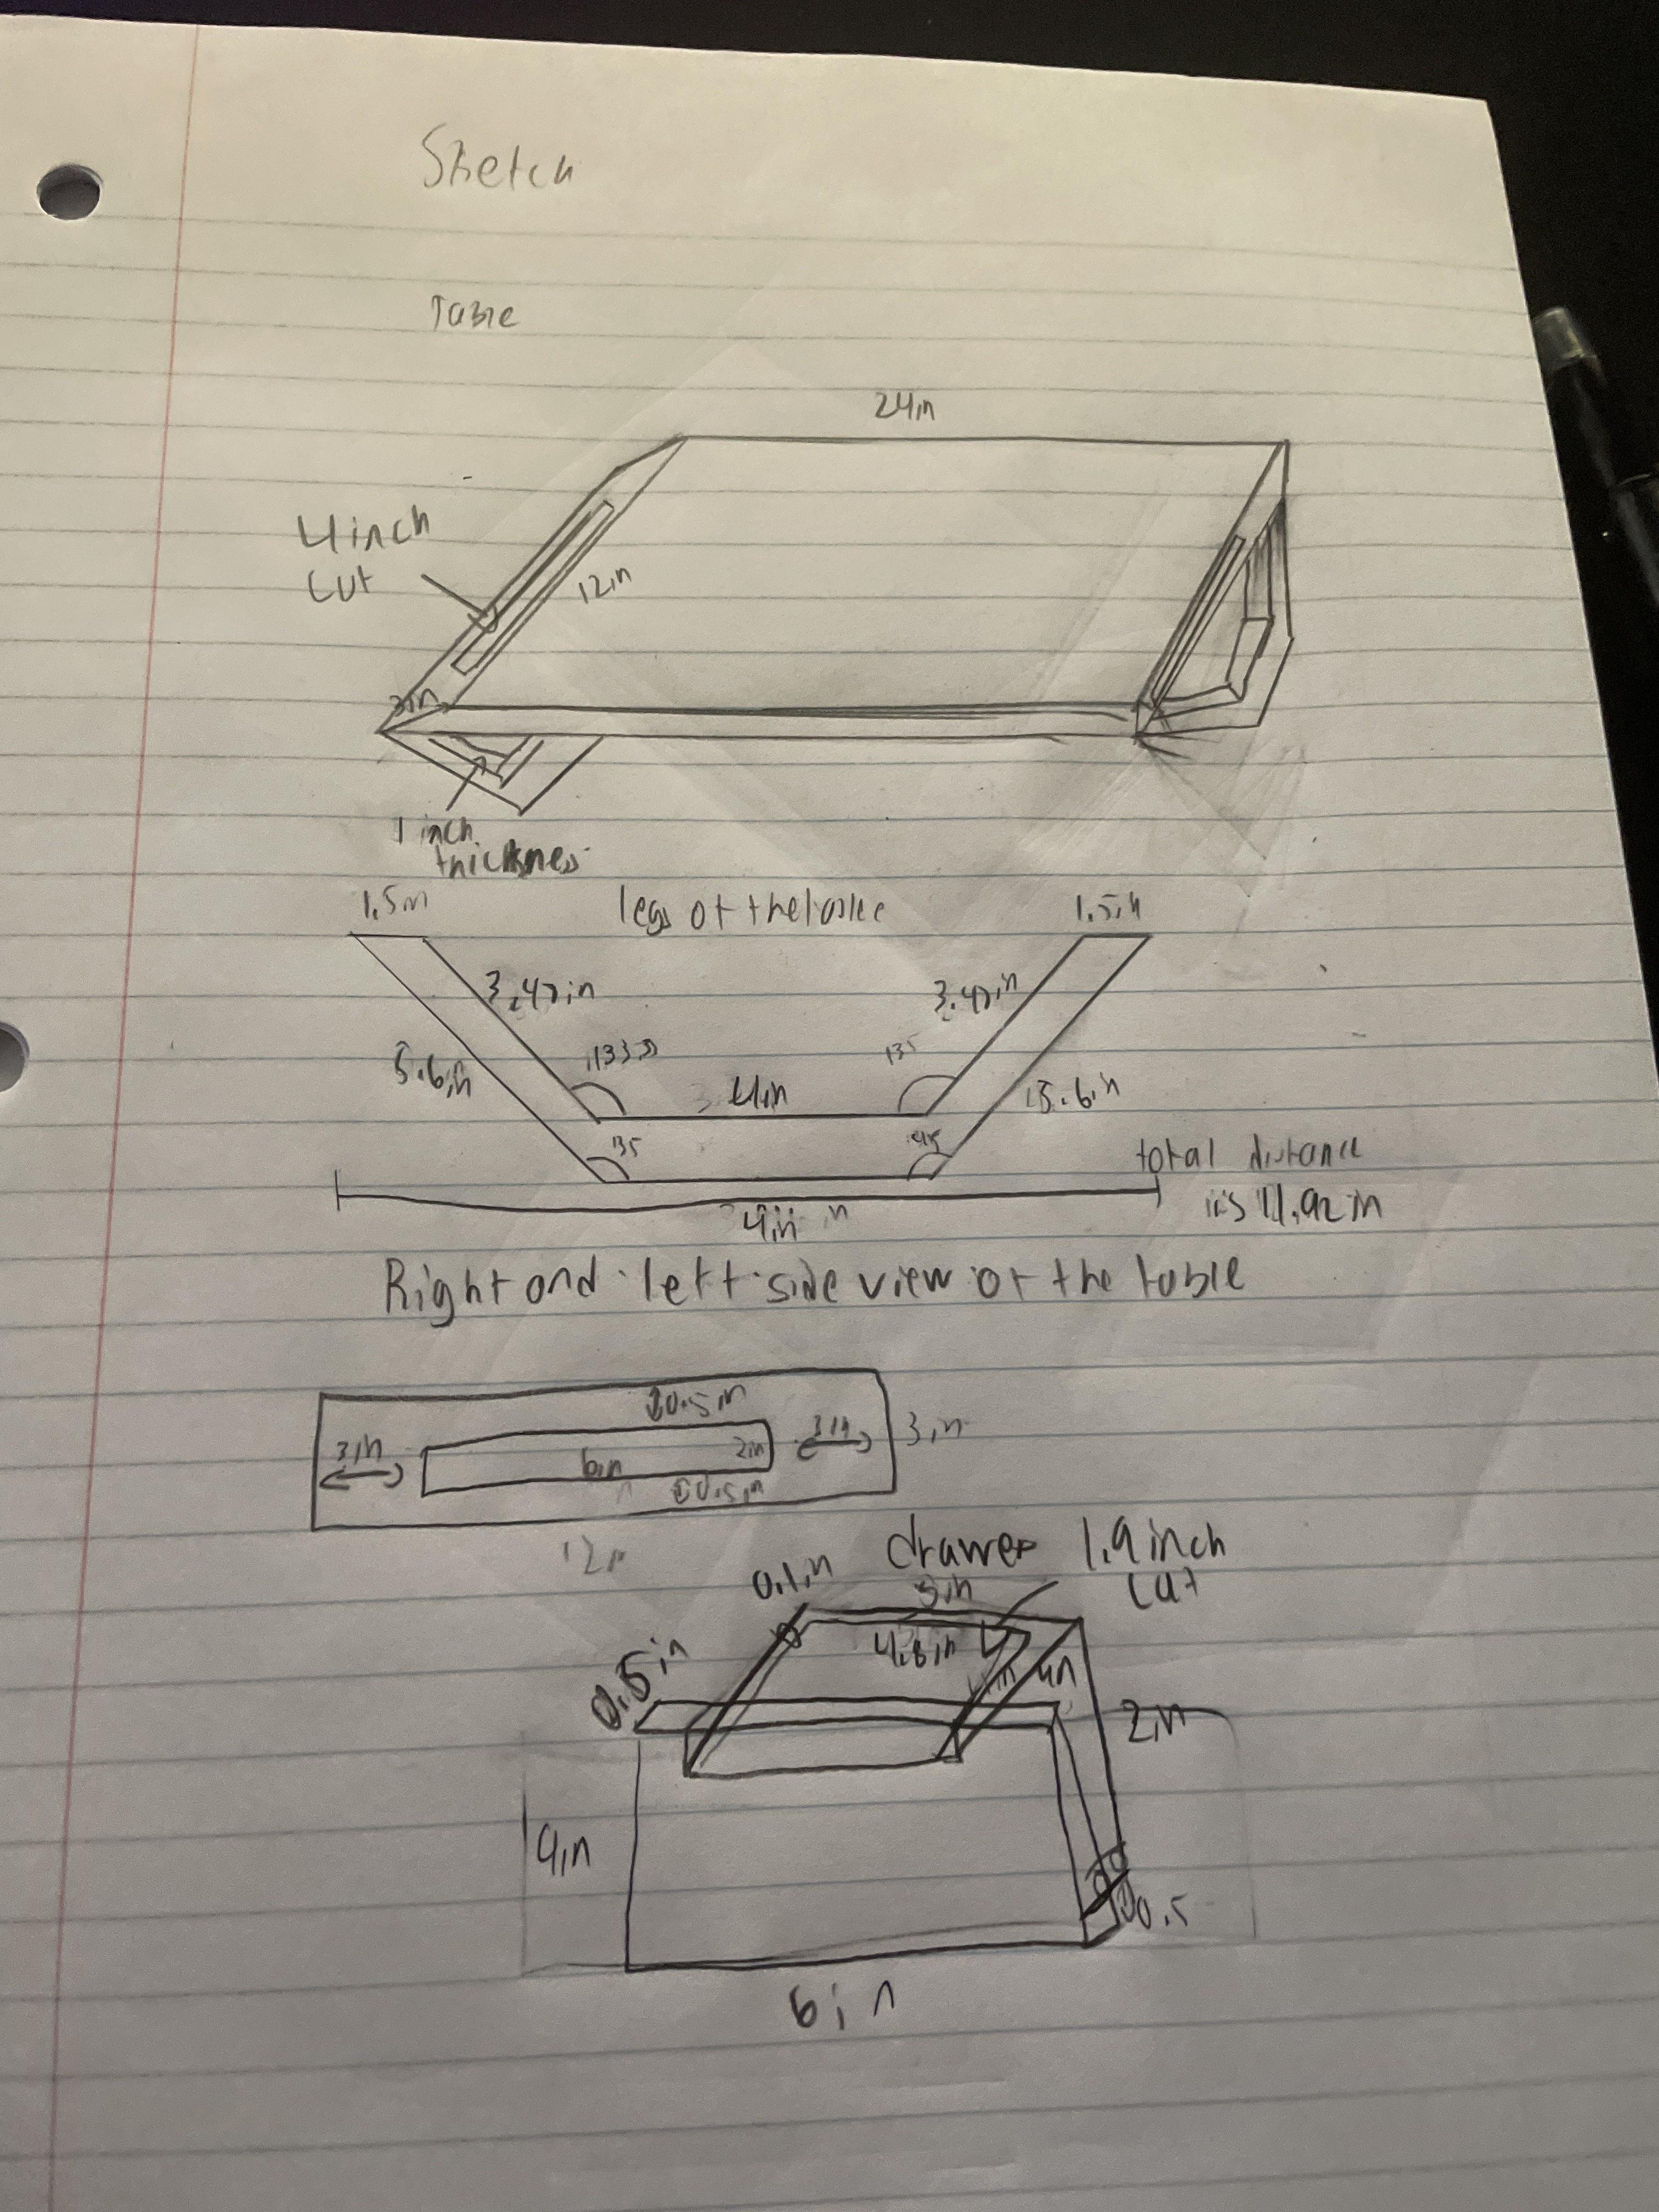 Sketch
Table
24in
4inch
cut
12in
3in
1 inch
thickness
1.5in
legs of the table
1.5in
3.47in
3.47in
5.6in
135
4in
5.6in
135
total distance
is 11.92in
4in
Right and left side view of the table
0.5in
3in
3in
3in
6in
2in
0.5in
12in
drawer
1.9inch
cut
0.1in
5in
4.8in
4in
0.5in
2in
4in
0.5
6in